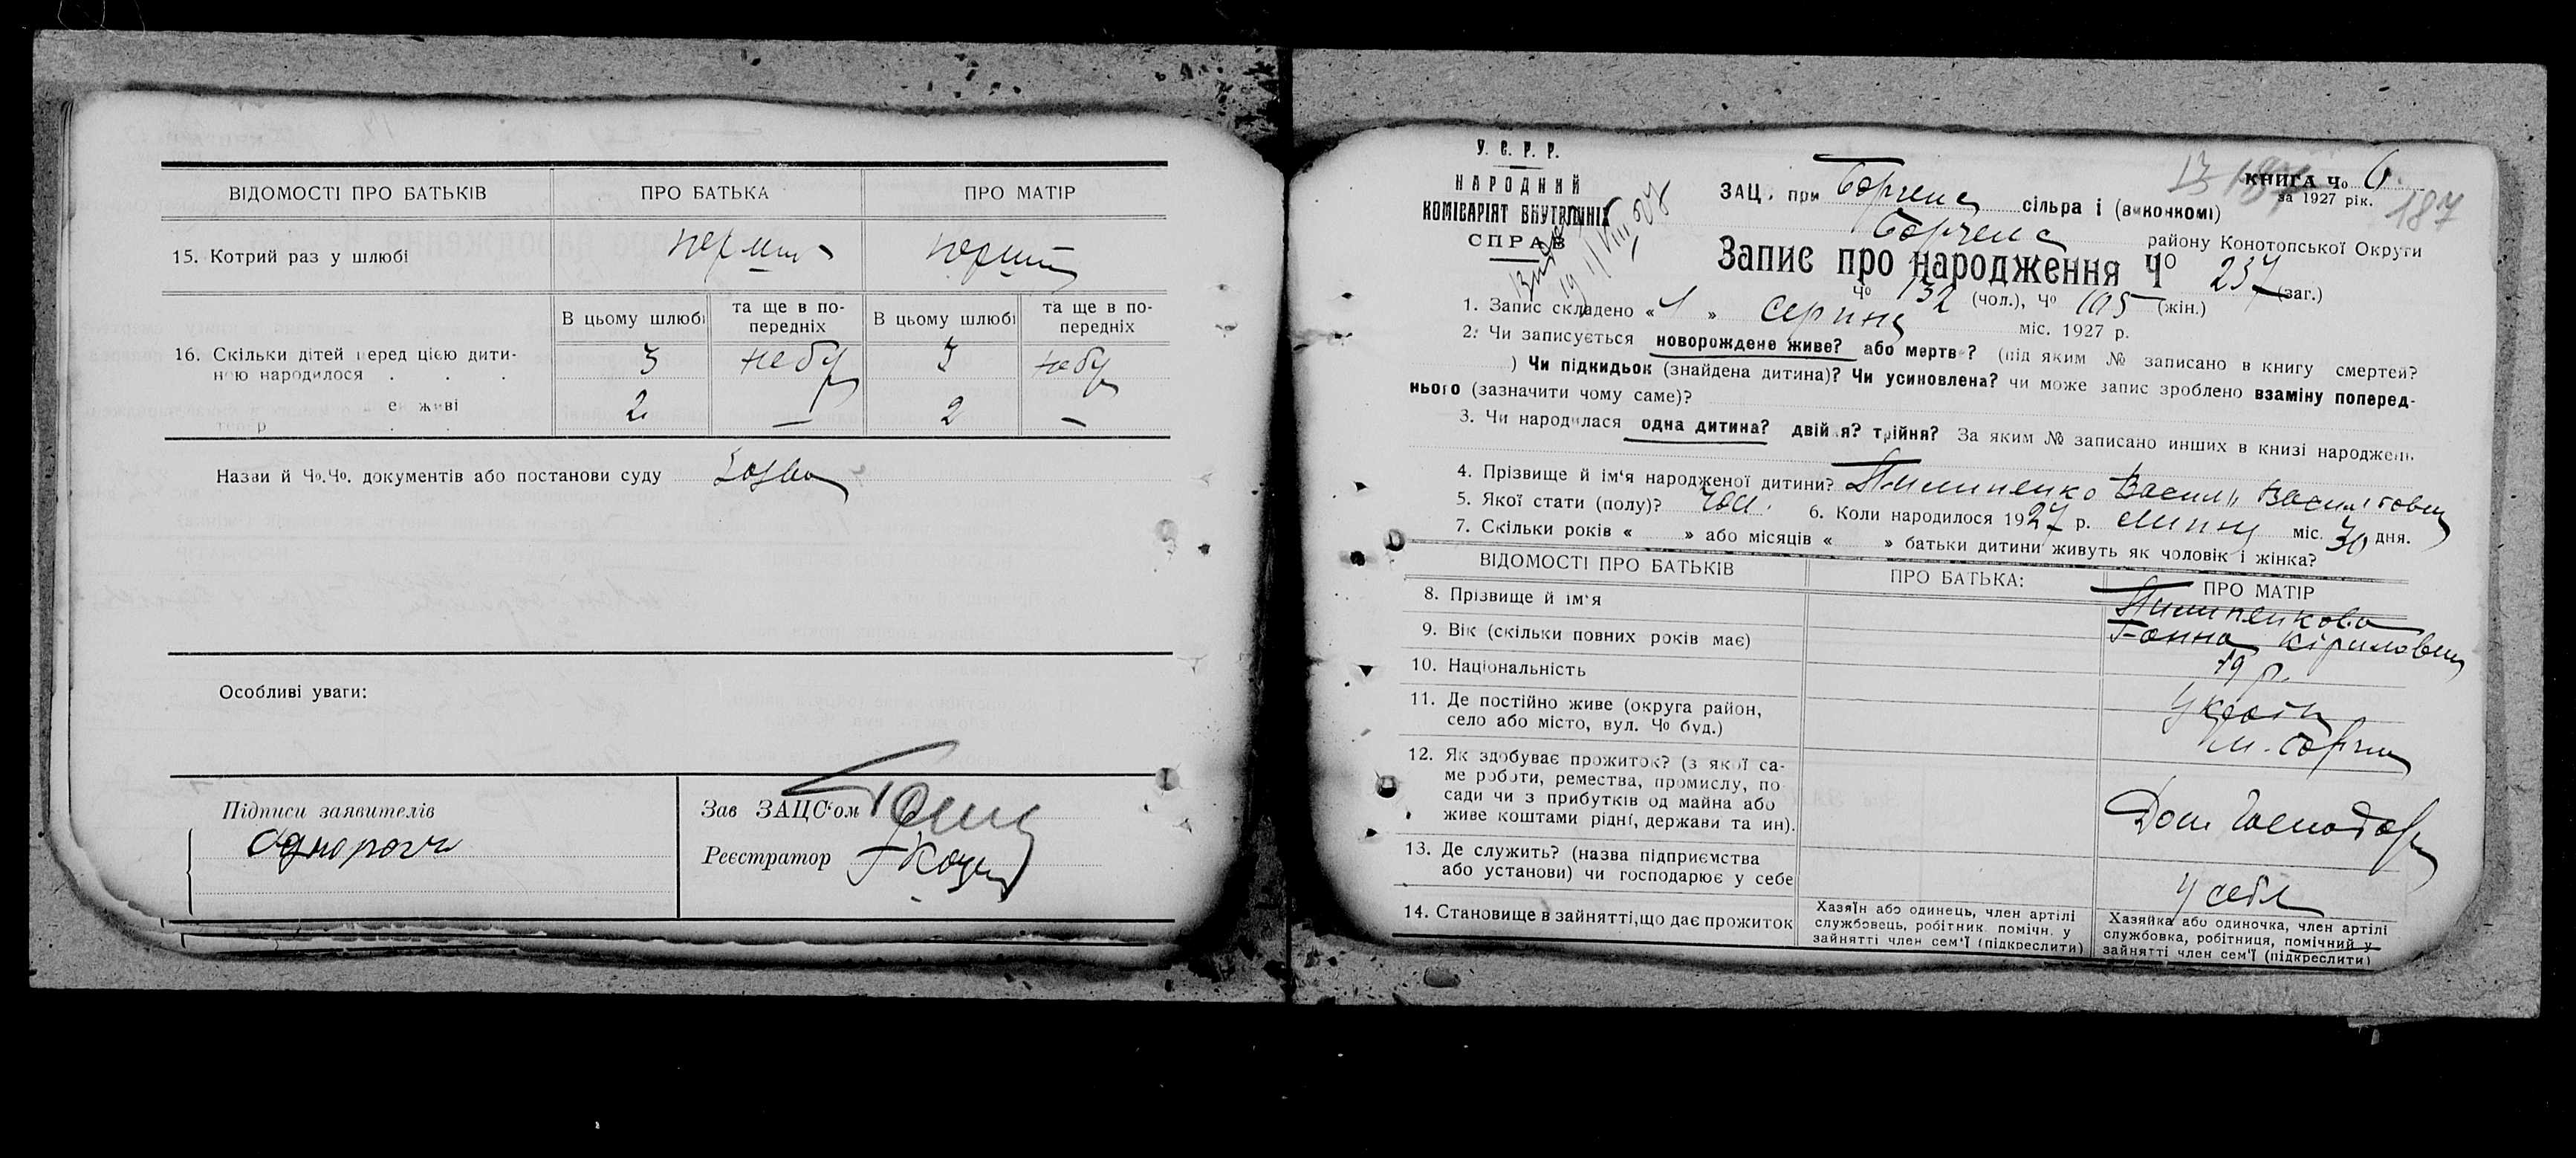 ВІДОМОСТІ ПРО БАТЬКІВ
ПРО БАТЬКА
ПРО МАТІР
15. Котрий раз у шлюбі
В цьому шлюбі
та ще в по-
передніх
В цьому шлюбі
та ще в по-
передніх
16. Скільки дітей перед цією дити-
ною народилося . . .
3 небу 3 небу
є живі . .
2 — 2 —
Назви й Чо.Чо. документів або постанови суду
Особливі уваги:
Підписи заявителів
Зав ЗАЦС‘ом
Реєстратор
У. С. Р. Р.
НАРОДНИЙ
КОМІСАРІЯТ ВНУТРІШНІХ
СПРАВ
КНИГА Чо 6
за 1927 рік.
187
ЗАЦ. при Борзенс сільра і (виконкомі)
Борзенс району Конотопської Округи
Запис про народження Чо 237 (заг.)
Чо 132 (чол.), Чо 105 (жін.)
1. Запис складено « 1 » серпня міс. 1927 р.
2. Чи записується новорождене живе? або мертве? (під яким № записано в книгу смертей?
) Чи підкидьок (знайдена дитина)? Чи усиновлена? чи може запис зроблено взаміну поперед-
нього (зазначити чому саме)?
3. Чи народилася одна дитина? двійня? трійня? За яким № записано инших в книзі народжень
4. Прізвище й ім‘я народженої дитини? Пилипенко Василь Васильович
5. Якої стати (полу)? чол. 6. Коли народилося 1927 р. липня міс. 30 дня.
7. Скільки років « » або місяців « » батьки дитини живуть як чоловік і жінка?
ВІДОМОСТІ ПРО БАТЬКІВ
ПРО БАТЬКА:
ПРО МАТІР
8. Прізвище й ім‘я
Пилипенкова
Ганна Кіриловна
9. Вік (скільки повних років має)
10. Національність
11. Де постійно живе (округа район,
село або місто, вул. Чо буд.)
м. Борзна
12. Як здобуває прожиток? (з якої са-
ме роботи, ремества, промислу, по
сади чи з прибутків од майна або
живе коштами рідні, держави та ин).
Дом господар
13. Де служить? (назва підприємства
або установи) чи господарює у себе
у себе
14. Становище в зайнятті, що дає прожиток
Хазяїн або одинець, член артілі
службовець, робітник. помічн. у
зайнятті член сем‘ї (підкреслити)
Хазяйка або одиночка, член артілі
службовка, робітниця, помічний у
зайнятті член сем‘ї (підкреслити)